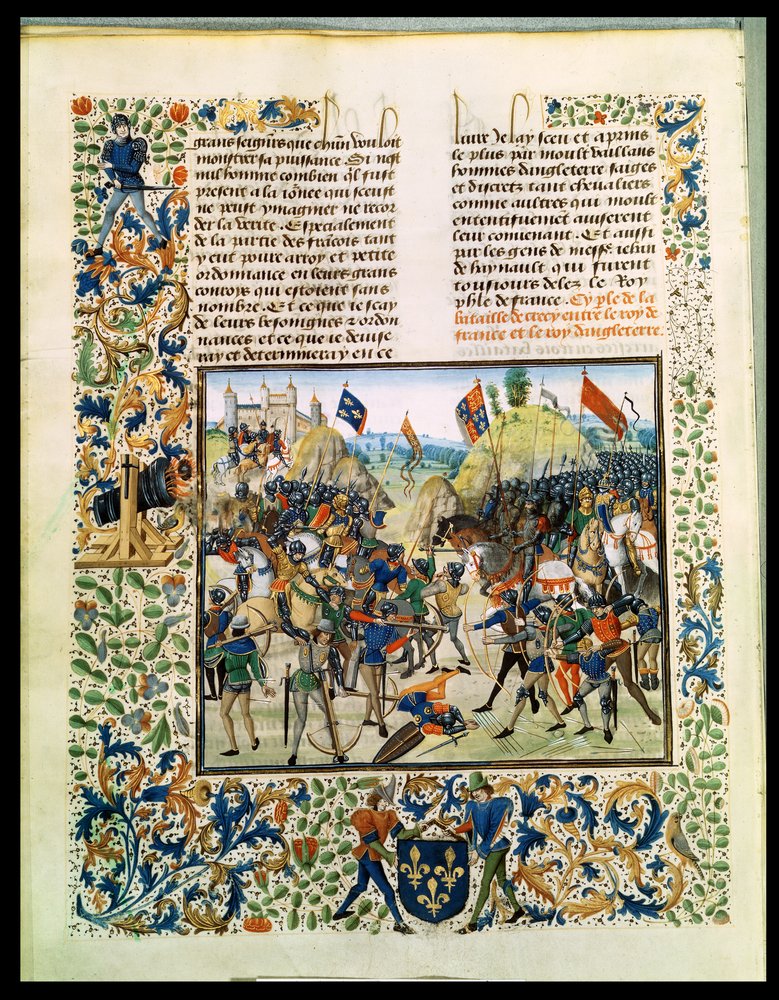 grans seigñrs que chũn vouloit
monstrer sa puissance. Si nest
nul homme combien ql fust
present a la iõnee qui sceust
ne peust ymaginer ne recor
der la verite. Especialement
de la partie des frãcois tant
y eut poure arroy et petite
ordonnance en leurs grans
conroys qui estoient sans
nombre. Et ce que ie scay
de leurs besoingnes & ordon
nances et ce que ie deuise
ray et determineray en ce
liure Je lay sceu et aprins
le plus par moult vaillans
hommes dangleterre saiges
et discretz tant cheualiers
comme aultres qui moult
ententiuemẽt auiserent
leur conuenant. Et aussi
par les gens de messẽ. iehan
de haynault qui furent
tousiours delez le Roy
phle de france. Cy ple de la
bataille de crecy entre le roy de
france et le roy dangleterre.